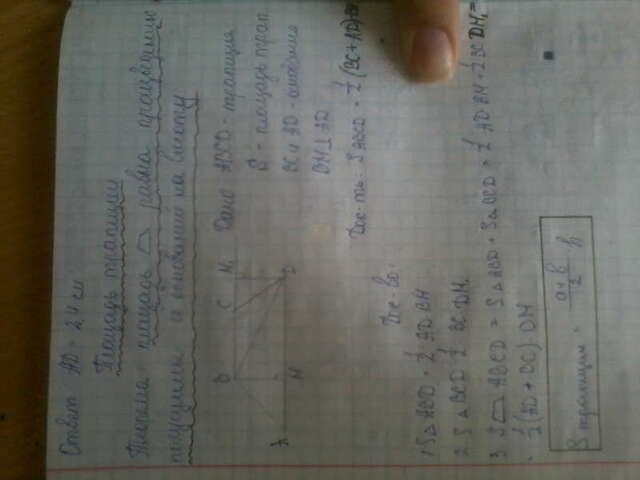 Ответ AD = 2,4 см
Площадь трапеции
Теорема площадь равна произведению
полусумме оснований на высоту
B C H₁
A H D
Дано ABCD - трапеция
S - площадь трап.
BC и AD - основания
BH ⊥ AD
Док-ть: S ABCD = 1/2 (BC + AD)
Док-во:
1 S△ ABD = 1/2 AD BH
2 S△ BCD 1/2 BC DH₁
3 S ABCD = S△ ABD + S△ BCD = 1/2 AD BH + 1/2 BC DH₁ =
= 1/2 (AD + BC) DH
S трапеции = a+b/2 h